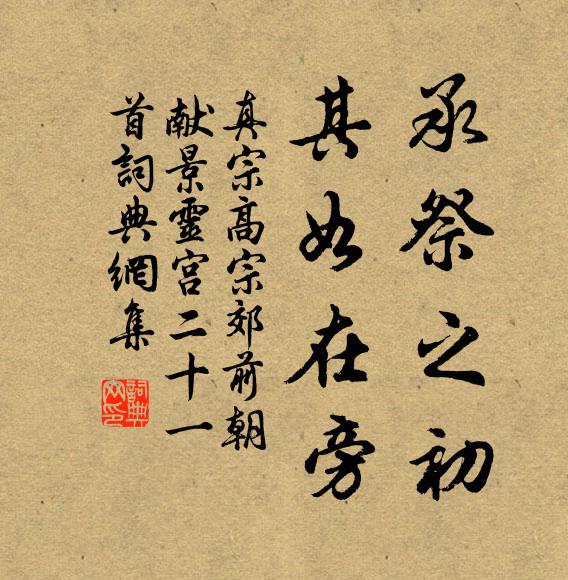 承祭之初
其如在旁
真宗高宗郊前朝
献景靈宮二十一
首詞典網集
詞典
网印